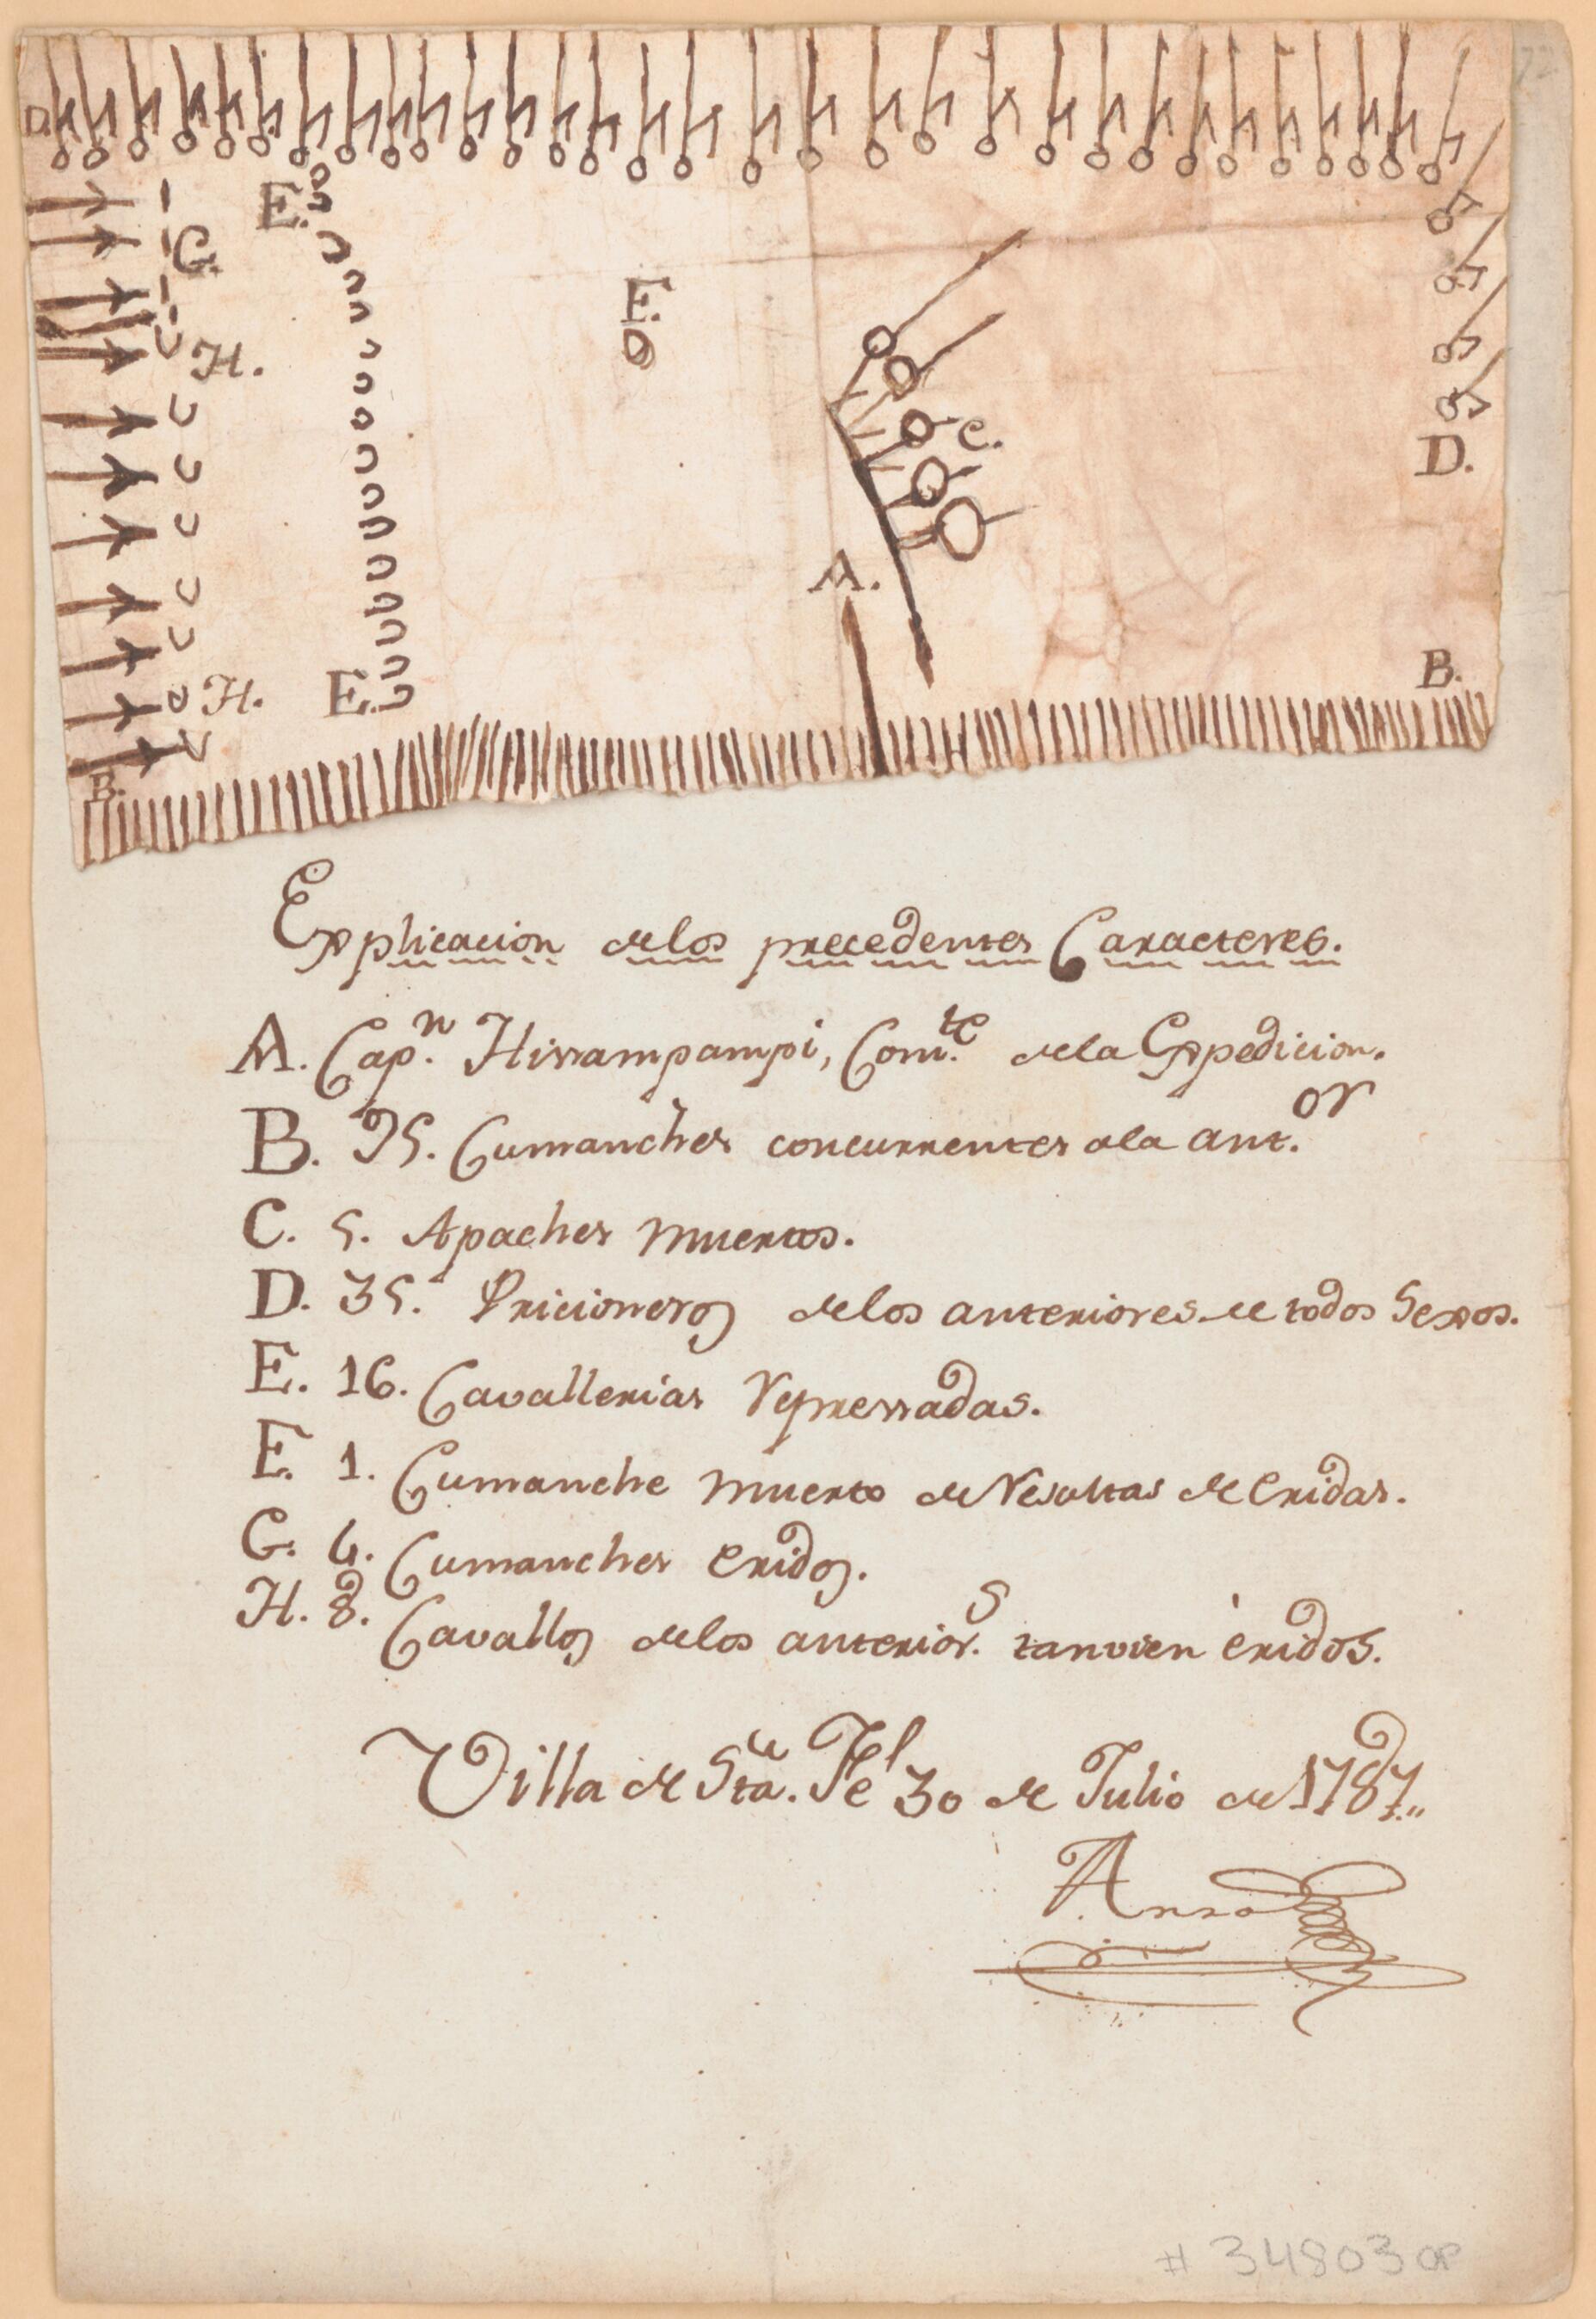 72
D.
E.
G.
E.
H.
C.
D.
A.
B.
H.
E.
B.
Explicacion delos precedentes Caracteres.
A. Cap.n Hissampampi, Com.te dela Expedicion.
B. 95. Cumanches concurrentes ala ant.or
C. 5. Apaches muertos.
D. 35. Pricioneros delos anteriores de todos Sexos.
E. 16. Cavallerias repressadas.
E. 1. Cumanche muerto de resultas de eridas.
G. 4. Cumanches eridos.
H. 8. Cavallos delos anterior.s tanvien èridos.
Villa de Sta. Fe 30 de Julio de 1787,,
Anza
# 348030P